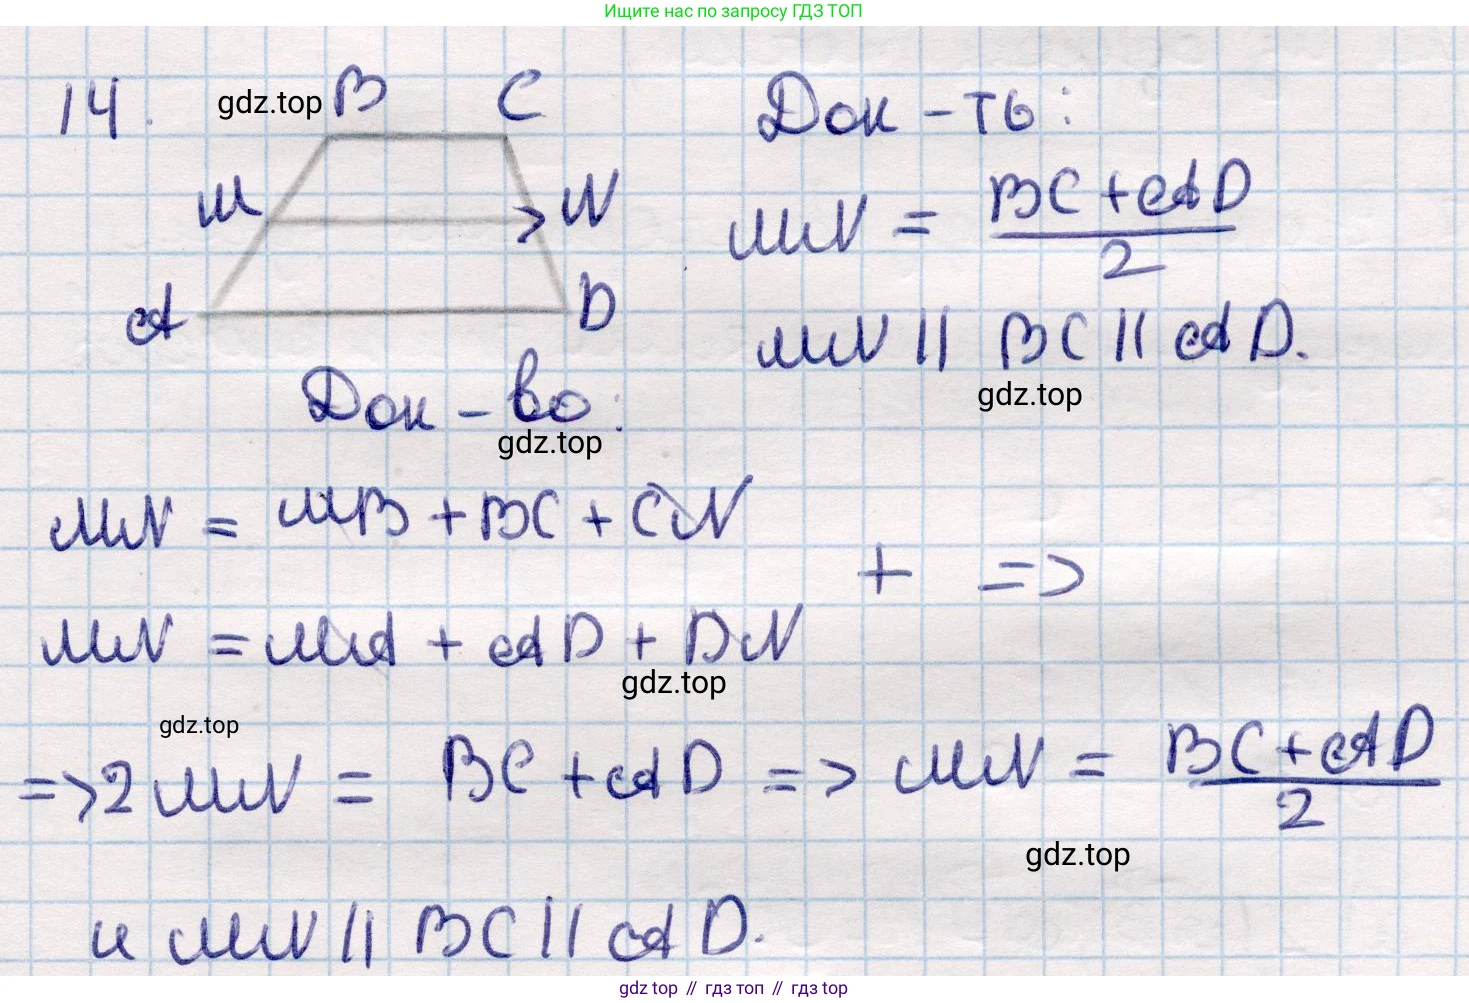 Ищите нас по запросу ГДЗ ТОП
14. gdz.top B C Док-ть:
M N MN = (BC + AD)/2
A D MN || BC || AD.
gdz.top
Док-во:
gdz.top
MN = MB + BC + CN
+ =>
MN = MA + AD + DN
gdz.top
gdz.top
=> 2MN = BC + AD => MN = (BC + AD)/2
gdz.top
и MN || BC || AD.
gdz top // гдз топ // гдз top